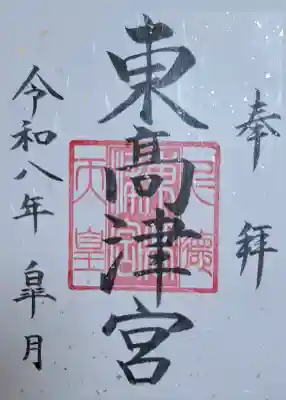 奉拝
東高津宮
令和八年 皐月